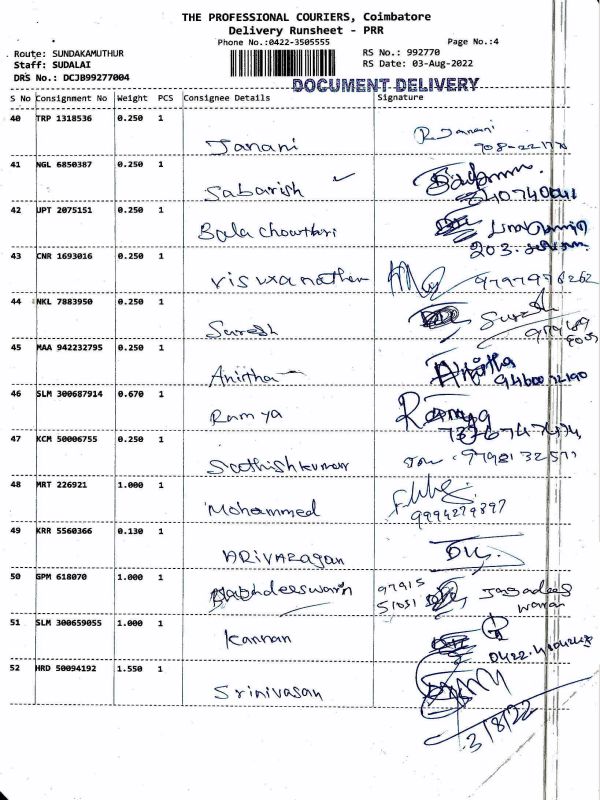 THE PROFESSIONAL COURIERS, Coimbatore
Delivery Runsheet - PRR
Phone No.:0422-3505555 Page No.:4
Route: SUNDAKAMUTHUR RS No.: 992770
Staff: SUDALAI RS Date: 03-Aug-2022
DRS No.: DCJB99277004
DOCUMENT DELIVERY
S No Consignment No Weight PCS Consignee Details Signature
40 TRP 1318536 0.250 1
Janani R. Janani
41 NGL 6850387 0.250 1
Sabarish
42 JPT 2075151 0.250 1
Bala chowthri
43 CNR 1693016 0.250 1
visuvanathan
44 NKL 7883950 0.250 1
Suresh Suresh
45 MAA 942232795 0.250 1
Anitha Anitha
46 SLM 300687914 0.670 1
Ramya Ramya
47 KCM 50006755 0.250 1
Sathishkumar
48 MRT 226921 1.000 1
Mohammed
9994279897
49 KRR 5560366 0.130 1
ARIVAZAGAN
50 GPM 618070 1.000 1
97915
51051
51 SLM 300659055 1.000 1
Kannan
52 HRD 50094192 1.550 1
Srinivasan
3/8/22